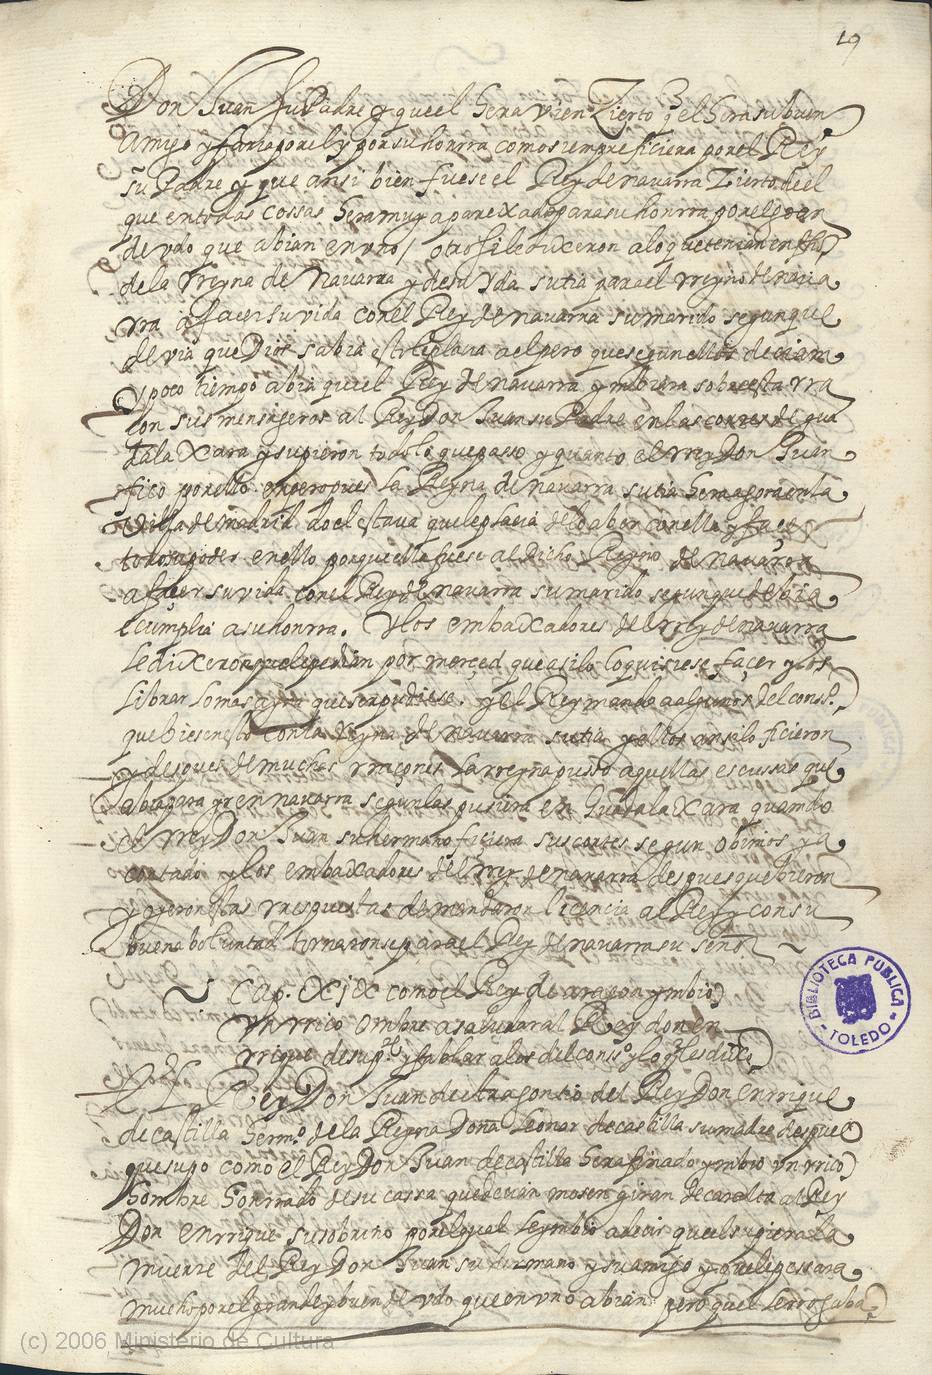 19
Don Juan su Padre y que el hera vien Zierto q el hera su buen
amigo y faria por el y por su honrra como siempre ficiera por el Rey
su Padre y que ansi bien fuese el Rey de navarra Zierto de el
que en todas cossas hera muy aparexado para su honrra por el gran
deudo que abian en vno / otrosi le dixeron a lo que tenian en
de la rreyna de Navarra y de su yda su tia para el rreyno de nava
rra a facer su vida con el Rey de navarra su marido segun que
devia que Dios sabia esto le placia a el pero que segun ellos decian
poco tiempo abia que el Rey de navarra ymbiara sobre esta rra
con sus mensajeros al Rey Don Juan su Padre en las cortes de gua
dalaxara y supieron todo lo que passo y quanto el rrey Don Juan
fico por ello. empero pues la Reyna de navarra su tia hera agora en la
Villa de madrid do el estava que le placia de lo aber con ella y facer
todo su poder en ello porque ella fuese al dicho Reyno de navarra
a facer su vida con el Rey de navarra su marido segun que debia
e cumplia a su honrra. Y los embaxadores del rrey de navarra
le dixeron que le pedian por merced que asi lo quisiese façer y los
librar lo mas ayna que ser pudiese. y el Rey mando a algunos del conso.
que biesen esto con la Reyna de navarra su tia y ellos ansi lo ficieron
y despues de muchas rraçones la rreyna pusso aquellas escussas que
abia para yr en navarra segun las pusiera en Guadalaxara quando
el rrey Don Juan su hermano ficiera sus cortes segun obimos ya
contado y los embaxadores del rrey de navarra desque esto bieron
y oyeron estas rrespuestas demandaron licencia al Rey y con su
buena boluntad tornaronse para el Rey de navarra su señor
Cap. XjX como el Rey de aragon ymbio
vn rrico ombre a saludar al Rey don en
rrique de su pte y fablar a los del conso y lo q les dixo
El Rey Don Juan de Aragon tio del Rey Don enrrique
de castilla hermo. de la Reyna Doña Leonor de castilla su madre despues
que supo como el Rey Don Juan de castilla hera finado ymbio vn rrico
hombre honrrado de su cassa que decian mosen giran de caralta al Rey
Don enrrique su sobrino por el qual le ymbio a decir que el supiera la
muerte del Rey Don Juan su hermano y su amigo y que le pessara
mucho por el grande y buen deudo que en vno abian pero que
BIBLIOTECA PUBLICA
TOLEDO
(c) 2006 Ministerio de Cultura